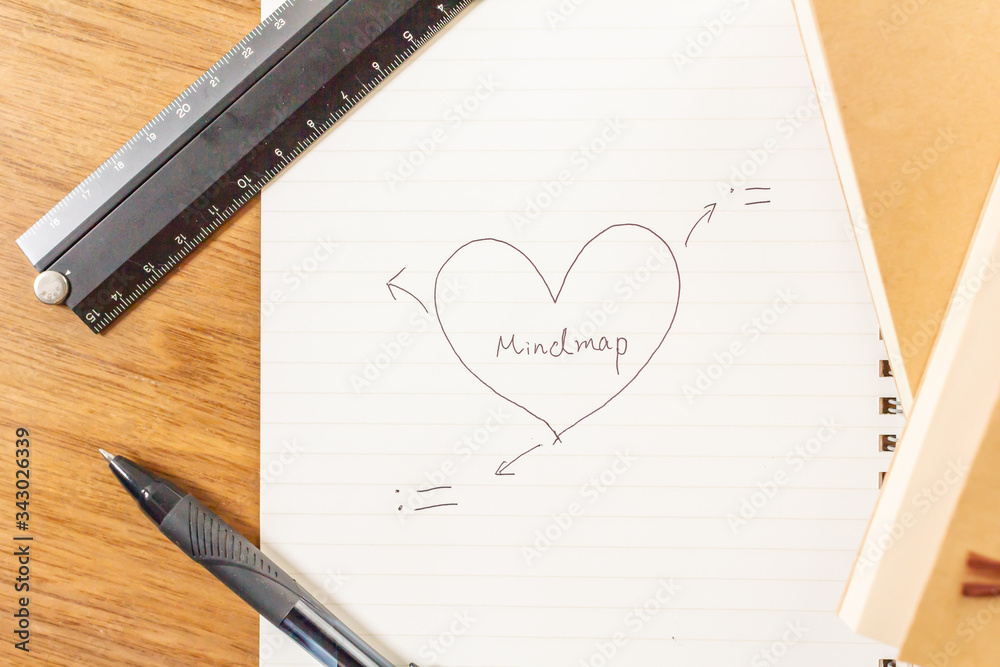 23
22
21
20
19
18
17
16
4
5
6
7
8
10
11
12
13
14
15
:=
Mindmap
:=
Adobe Stock | #343026339